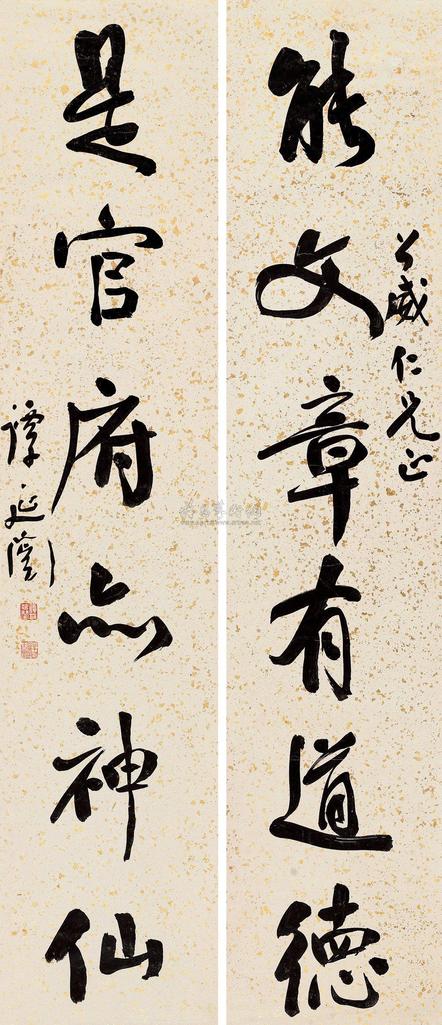 能文章有道德
公威仁兄正
是官府亦神仙
譚延闓